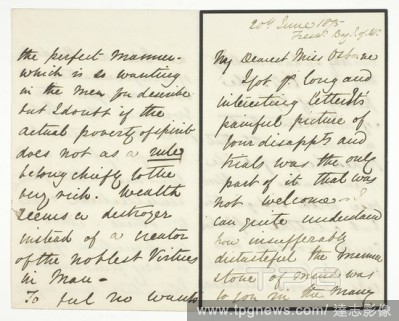 20th June 185
Fresh. Bay. I. of W.
My Dearest Miss Osborne
I got yr long and
interesting letter. Its
painful picture of
your disappts and
trials was the only
part of it that was
not welcome. I
can quite understand
how insufferably
distasteful the manner
& tone of mind was
to you in the many
the perfect manner-
which is so wanting
in the men you describe
but I doubt if the
actual poverty of spirit
does not as a rule
belong chiefly to the
very rich. Wealth
seems a destroyer
instead of a creator
of the noblest Virtues
in Man-
To feel no wants
www.tpgnews.com/達志影像